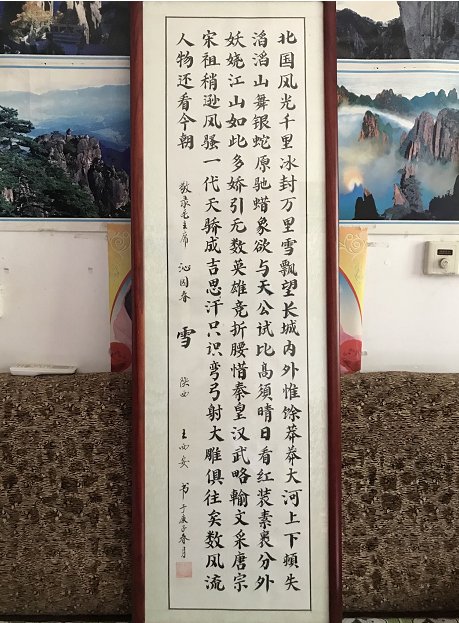 北国风光千里冰封万里雪飘望长城内外惟馀莽莽大河上下頓失
滔滔山舞银蛇原驰蜡象欲与天公试比高須晴日看红装素裹分外
妖娆江山如此多娇引无数英雄竞折腰惜秦皇汉武略输文采唐宗
宋祖稍逊风骚一代天骄成吉思汗只识弯弓射大雕俱往矣数风流
人物还看今朝 敬录毛主席 沁园春 雪 陕西 王西安 书于庚子春月